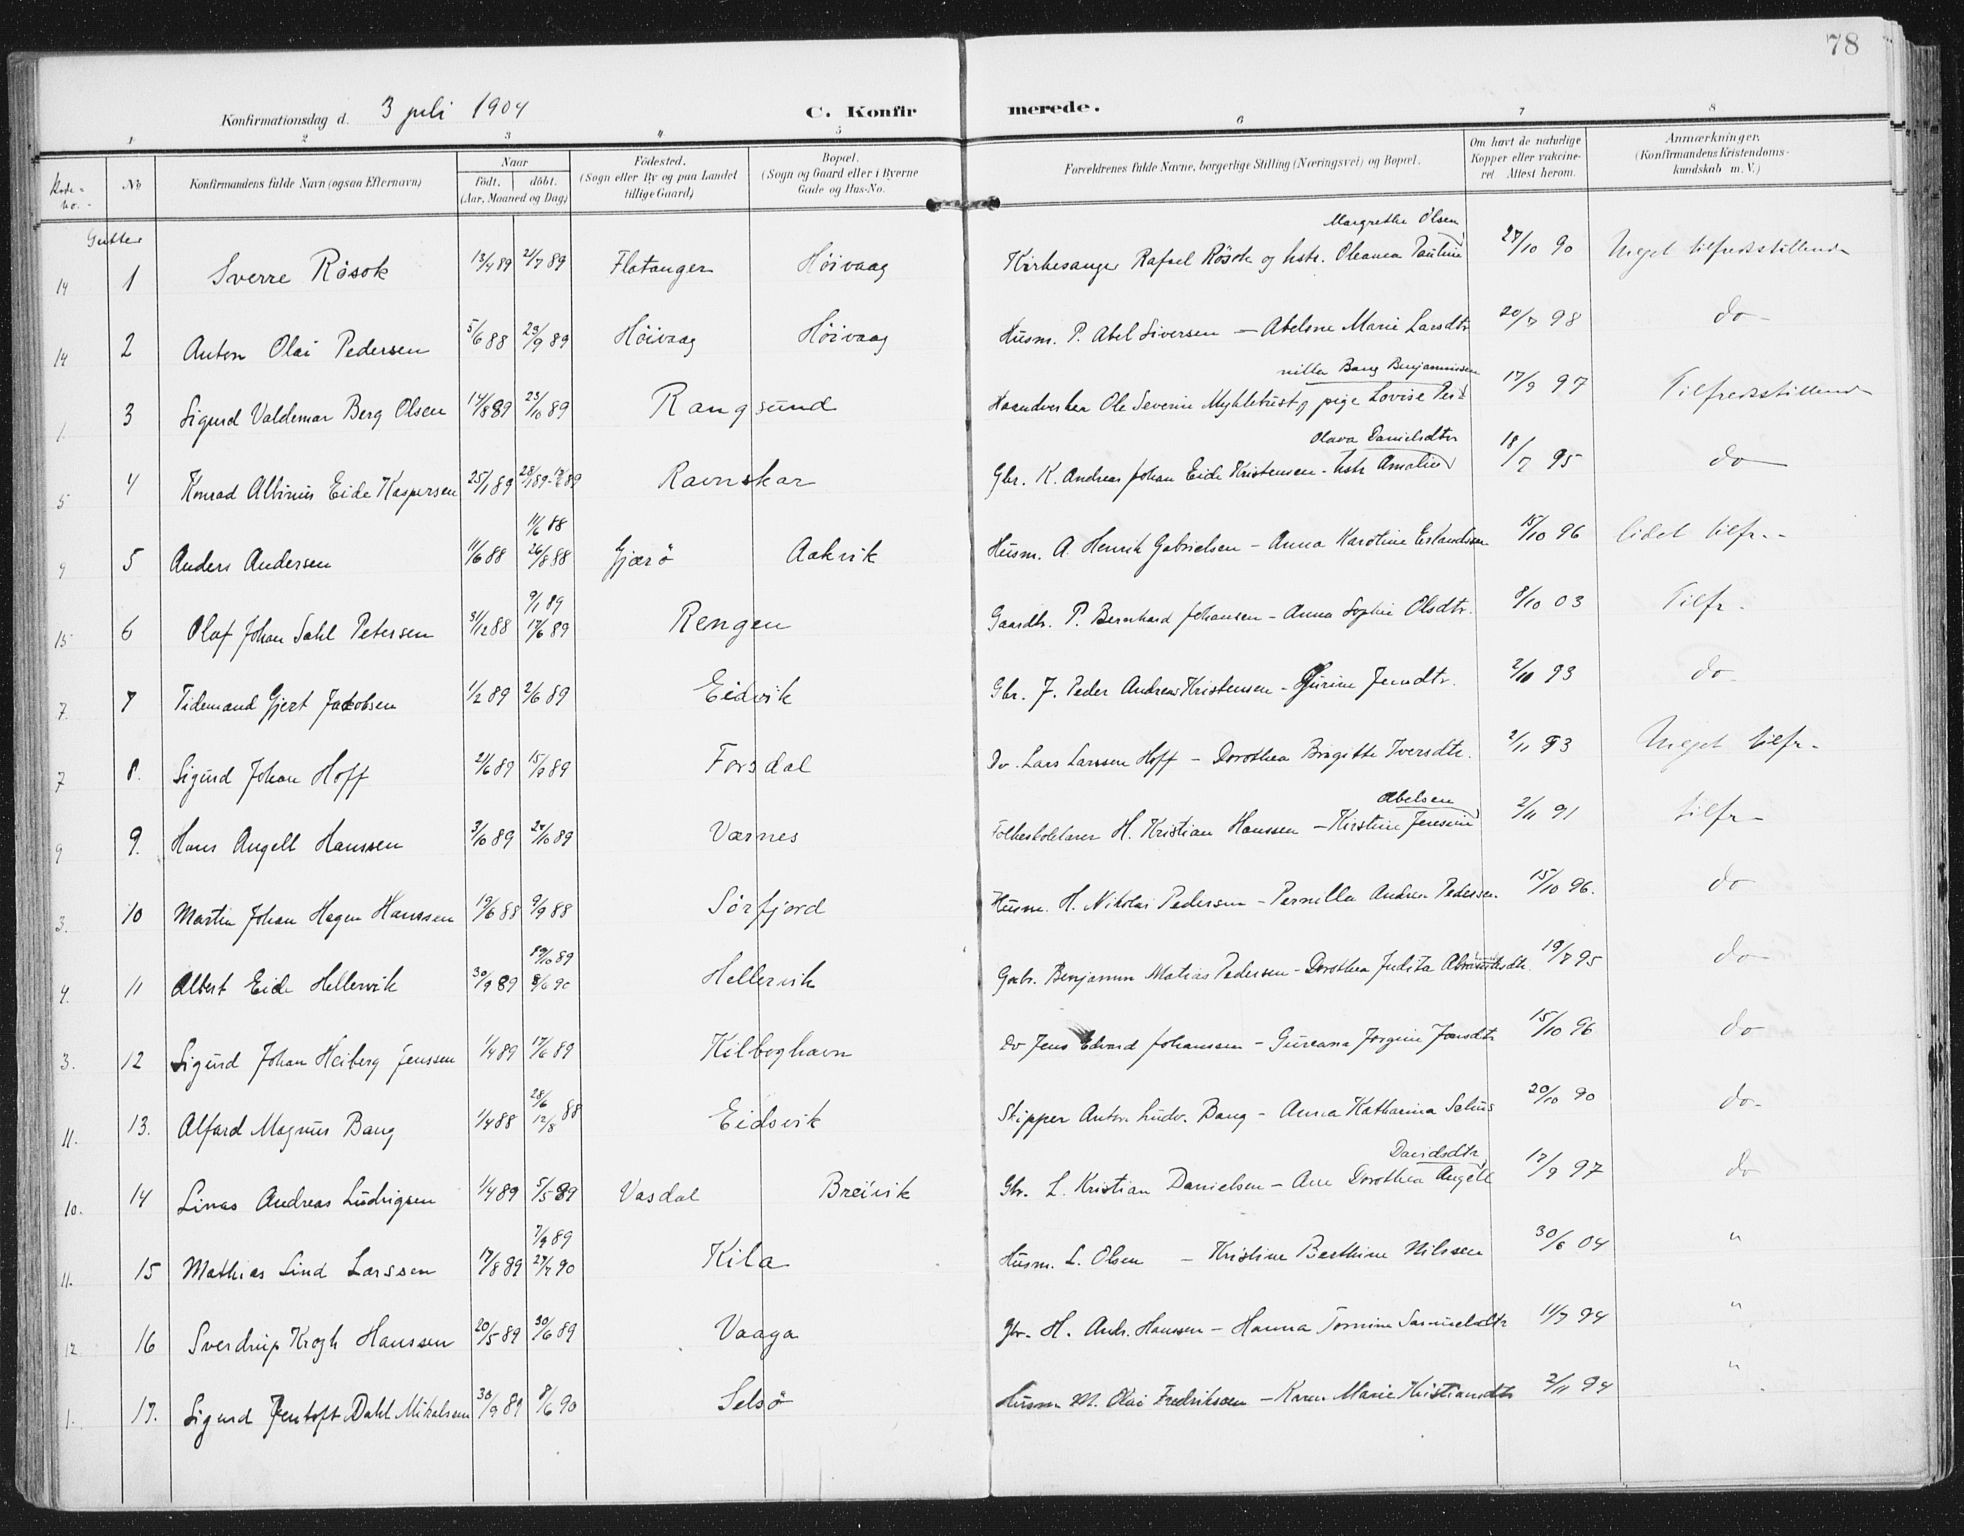 78
Konfirmationsdag d. 3 juli 1904 C. Konfirmerede.
1 2 3 4 5 6 7 8
No
Konfirmandens fulde Navn (ogsaa Efternavn)
Naar
født. døbt.
(Aar, Maaned og Dag)
Fødested.
(Sogn eller By og paa Landet tillige Gaard)
Bopæl.
(Sogn og Gaard eller i Byerne Gade og Hus-No.
Forældrenes fulde Navne, borgerlige Stilling (Næringsvei) og Bopæl.
Om havt de naturlige Kopper eller vakcineret Attest herom.
Anmærkninger.
(Konfirmandens Kristendomskundskab m. V.)
Gutter
Margrethe Olsen
14 1 Sverre Rösok 13/4 89 21/7 89 Flatanger Höivaag Kirkesanger Rafael Rösok og hstr. Oleanea Pauline 27/10 90 Meget tilfredsstillende
14 2 Anton Olai Pedersen 5/6 88 29/9 89 Höivaag Höivaag Husm. P. Abel Siversen — Abelone Marie Larsdtr 20/7 98 do
nilla Bang Benjaminssen
1. 3 Sigurd Valdemar Berg Olsen 14/8 89 23/10 89 Rangsund Haandverker Ole Severin Myhletust og pige Lovise Per 17/9 97 Tilfredsstillende
Olava Danielsdtr
5 4 Konrad Albinus Eide Kaspersen 25/1 89 Ravnskar Gbr. K. Andreas Johan Eide Kristensen - hstr Amalie 18/7 95 do
11/6 88
9 5 Anders Andersen 11/6 88 26/8 88 Gjærö Aakvik Husm. A. Henrik Gabrielsen - Anna Karoline Erlandsen 15/10 96 lidet tilfr.
9/1 89
15 6 Olaf Johan Dahl Petersen 31/12 88 17/6 89 Rengen Gaardbr. P. Bernhard Johansen - Anna Sophie Olsdtr. 8/10 03 Tilfr.
7. 7 Tidemand Gjert Jakobsen 1/2 89 2/6 89 Eidvik Gbr. J. Peder Andreas Kristensen - Gjurine Jensdtr. 2/11 93 do
7 8. Sigurd Johan Hoff 2/6 89 15/9 89 Forsdal Do. Lars Larssen Hoff - Dorothea Brigitte Iversdtr. 2/11 93 Meget tilfr.
Abelsen
9 9. Hans Angell Hanssen 3/10 89 27/10 89 Værnes Folkeskolelærer H. Kristian Hanssen - Kirstine Jensine 2/11 91 tilfr
3. 10 Martin Johan Hagen Hanssen 19/6 88 9/9 88 Sörfjord Husm. H. Nikolai Pedersen - Pernilla Andrea Pedersen 15/10 96. do
19/10 89
4. 11 Albert Eide Hellervik 30/9 89 8/6 90 Hellervik Gbr. Benjamin Matias Pedersen - Dorothea Judita 19/7 95 do
3. 12 Sigurd Johan Heiberg Jenssen 1/4 89 17/6 89 Kilboghavn Do Jens Edvard Johanssen - Gureana Jörgine Jonsdtr 15/10 96 do
28/6
11. 13. Alfard Magnus Bang 1/4 88 12/8 88 Eidsvik Skipper Anton Ludv. Bang - Anna Katharina Selius 20/10 90 do
Davidsdtr
10. 14 Linas Andreas Ludvigsen 1/4 89 5/5 89 Vasdal Breivik Gbr. L. Kristian Danielsen - Ane Dorothea Angell 17/9 97 do
7/9 89
11. 15 Mathias Lind Larssen 17/8 89 27/7 90 Kila Husm. L. Olsen - Kristine Berthine Nilssen 30/6 04 "
12 16 Sverdrup Krogh Hanssen 20/5 89 30/6 89 Vaaga Gbr. H. Andr. Hanssen - Hanna Tomine Samuelsdtr 11/7 94 "
1. 17. Sigurd Jentoft Dahl Mikalsen 30/9 89 8/6 90 Selsö Husm M. Olai Fredriksen - Karen Marie Kristiansdtr 2/11 94 "